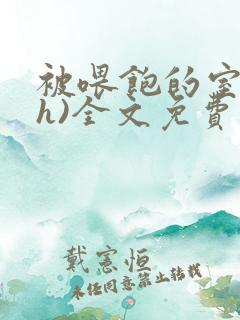 被喂飽的室
h)全文免費
戴憲恒
未任同意禁止转载